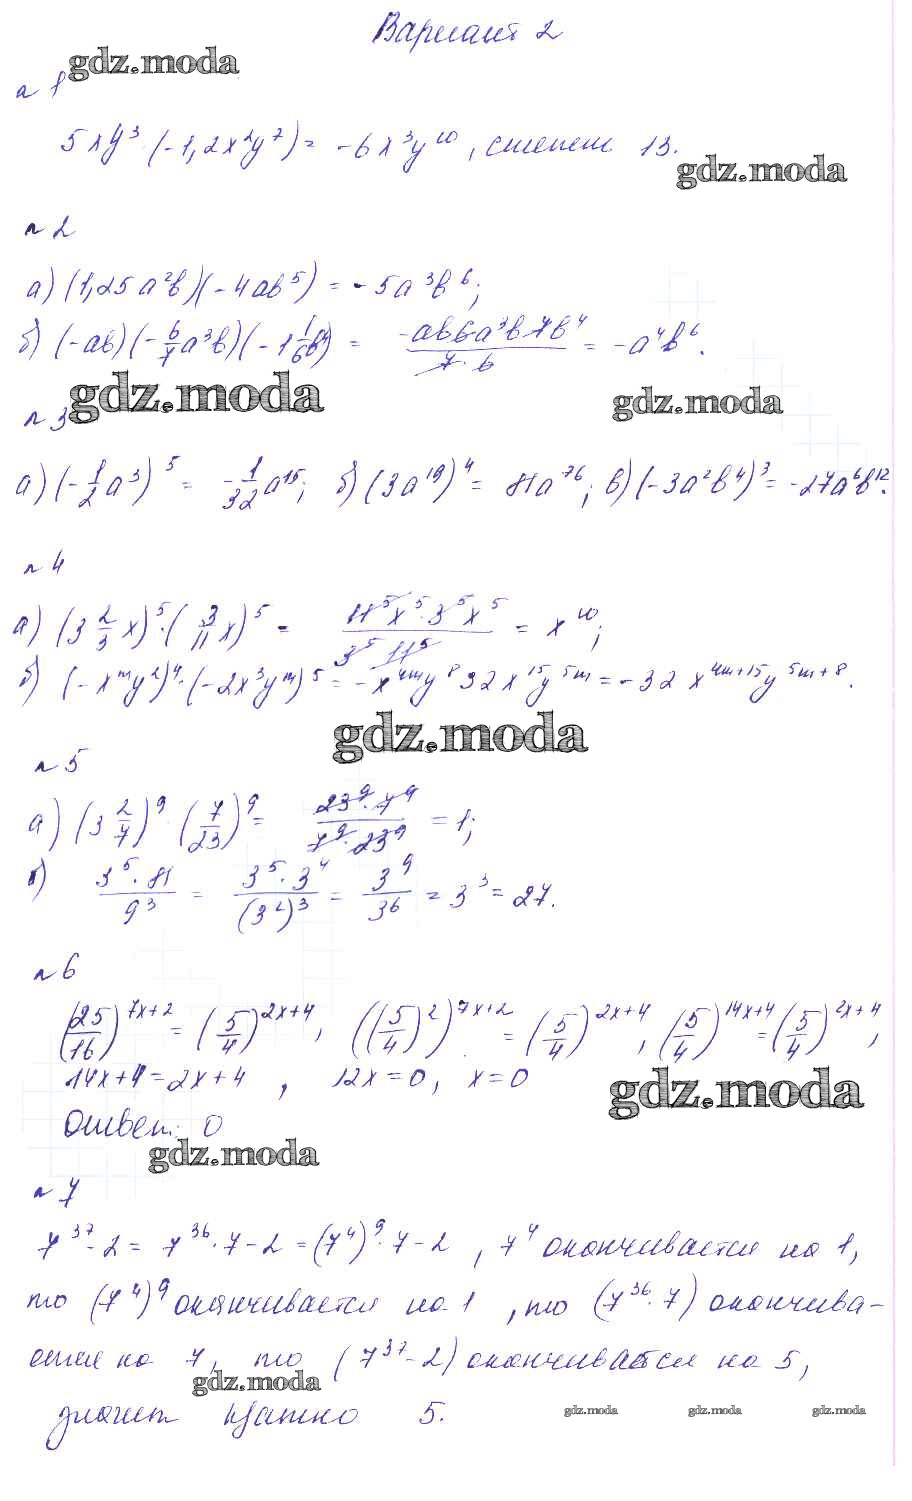 Вариант 2
gdz.moda
n 1
5xy³·(-1,2x²y⁷) = -6x³y¹⁰, степень 13.
gdz.moda
n 2
а) (1,25a²b)(-4ab⁵) = -5a³b⁶;
б) (-ab)(-6/7a³b)(-1 1/6b⁴) = -ab6a³b7b⁴/7·6 = -a⁴b⁶.
gdz.moda
gdz.moda
n 3
а) (-1/2a³)⁵ = -1/32a¹⁵; б) (3a¹⁹)⁴ = 81a⁷⁶; в) (-3a²b⁴)³ = -27a⁶b¹².
n 4
а) (3 2/3x)⁵·(3/11x)⁵ = 11⁵x⁵·3⁵x⁵/3⁵·11⁵ = x¹⁰;
б) (-xᵐy²)⁴·(-2x³yᵐ)⁵ = -x⁴ᵐy⁸32x¹⁵y⁵ᵐ = -32x⁴ᵐ⁺¹⁵y⁵ᵐ⁺⁸.
gdz.moda
n 5
а) (3 2/7)⁹·(7/23)⁹ = 23⁹·7⁹/7⁹·23⁹ = 1;
б) 3⁵·81/9³ = 3⁵·3⁴/(3²)³ = 3⁹/3⁶ = 3³ = 27.
n 6
(25/16)^7x+2 = (5/4)^2x+4, ((5/4)²)^7x+2 = (5/4)^2x+4, (5/4)^14x+4 = (5/4)^2x+4,
14x+4=2x+4, 12x=0, x=0
gdz.moda
ответ: 0
gdz.moda
n 7
7³⁷-2 = 7³⁶·7-2 = (7⁴)⁹·7-2, 7⁴ оканчивается на 1,
то (7⁴)⁹ оканчивается на 1, то (7³⁶·7) оканчива-
ется на 7, то (7³⁷-2) оканчивается на 5,
gdz.moda
значит кратно 5.
gdz.moda gdz.moda gdz.moda